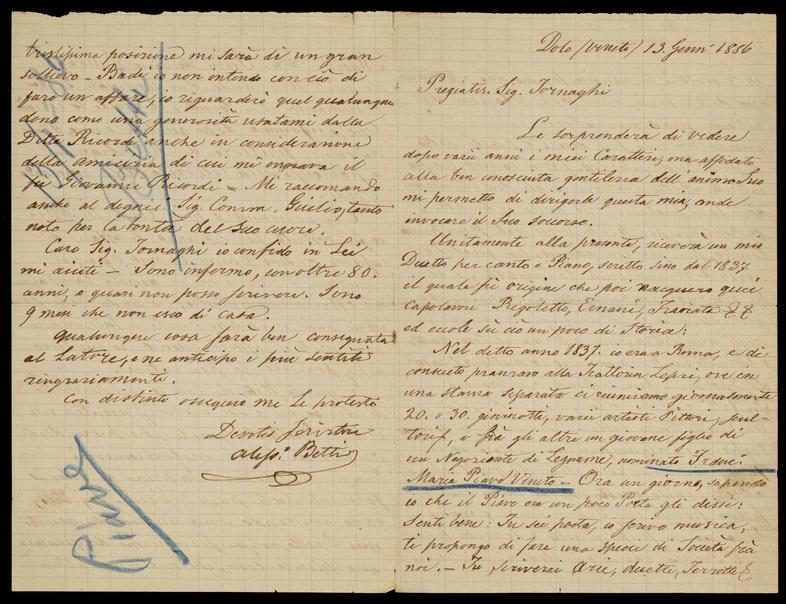 Dolo (Veneto) 13. Genn° 1886
Pregiatis. Sig. Tornaghi
Le sorprenderà di vedere
dopo varii anni i miei Caratteri, ma affidato
alla ben conosciuta gentilezza dell'animo Suo
mi permetto di dirigerle questa mia, onde
invocare il Suo soccorso.
Unitamente alla presente, riceverà un mio
Duetto per canto e Piano, scritto sino dal 1837.
il quale fù origine che poi nacquero quei
capolavori Rigoletto, Ernani, Traviata &. &
ed eccole sù ciò un poco di Storia:
Nel detto anno 1837. io era a Roma, e di
consueto pranzavo alla Trattoria Lepri, ove in
una stanza separata ci riunivamo giornalmente
20. o 30. giovinotti, varii artisti Pittori, scul-
tori, e frà gli altri un giovane figlio di
un Negoziante di Legname, nominato Franc.
Maria Piave Veneto – Ora un giorno, sapendo
io che il Piave era un poco Poeta gli dissi:
Senti bene: Tu sei poeta, io scrivo musica,
ti propongo di fare una specie di Società frà
noi. – Tu scriverai Arie, duetti, Terzetti &
tristissima posizione mi sarà di un gran
sollievo – Badi io non intendo con ciò di
fare un affare, io riguarderò quel qualunque
dono come una generosità usatami dalla
Ditta Ricordi anche in considerazione
della amicizia di cui mi onorava il
fù Giovanni Ricordi = Mi raccomando
anche al degnis. Sig. Comm. Giulio, tanto
noto per la bontà del Suo cuore.
Caro Sig. Tornaghi io confido in Lei
mi aiuti – Sono infermo, con oltre 80.
anni, e quasi non posso scrivere. Sono
9 mesi che non esco di casa.
Qualunque cosa sarà ben consegnata
al Latore, e ne anticipo i più sentiti
ringraziamenti.
Con distinto ossequio me Le protesto
Devotis Servitore
Aless.° Betti
Piave